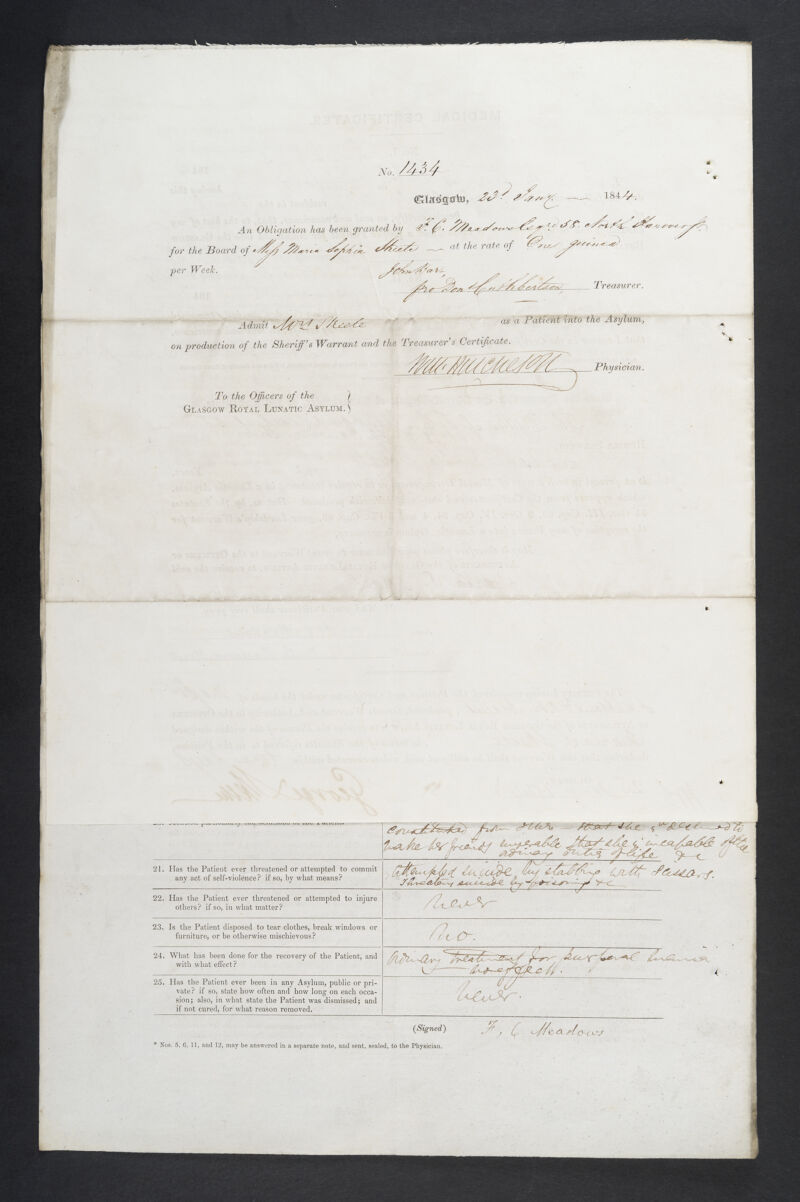 No. 1434
Glasgow, 23d Jany. — 1844.
An Obligation has been granted by F. C. Meadows Esqre 58 North Hanover St.
for the Board of Miss Maria Sophia Skeete — at the rate of One guinea
per Week.
John
pro Don Cuthbertson Treasurer.
Admit Mrs Skeete as a Patient into the Asylum,
on production of the Sheriff's Warrant and the Treasurer's Certificate.
Wm Hutcheson Physician.
To the Officers of the
GLASGOW ROYAL LUNATIC ASYLUM.
from others that she is destined to
make her friends miserable that she is incapable of the
ordinary duties of life &c
21. Has the Patient ever threatened or attempted to commit
any act of self-violence? if so, by what means?
Attempted suicide by stabbing with scissars.
Threatens suicide by poisoning &c
22. Has the Patient ever threatened or attempted to injure
others? if so, in what matter?
Never
23. Is the Patient disposed to tear clothes, break windows or
furniture, or be otherwise mischievous?
No.
24. What has been done for the recovery of the Patient, and
with what effect?
Ordinary treatment for puerperal mania
no effect.
25. Has the Patient ever been in any Asylum, public or pri-
vate? if so, state how often and how long on each occa-
sion; also, in what state the Patient was dismissed; and
if not cured, for what reason removed.
Never.
(Signed) F. C. Meadows
* Nos. 5, 6, 11, and 12, may be answered in a separate note, and sent, sealed, to the Physician.